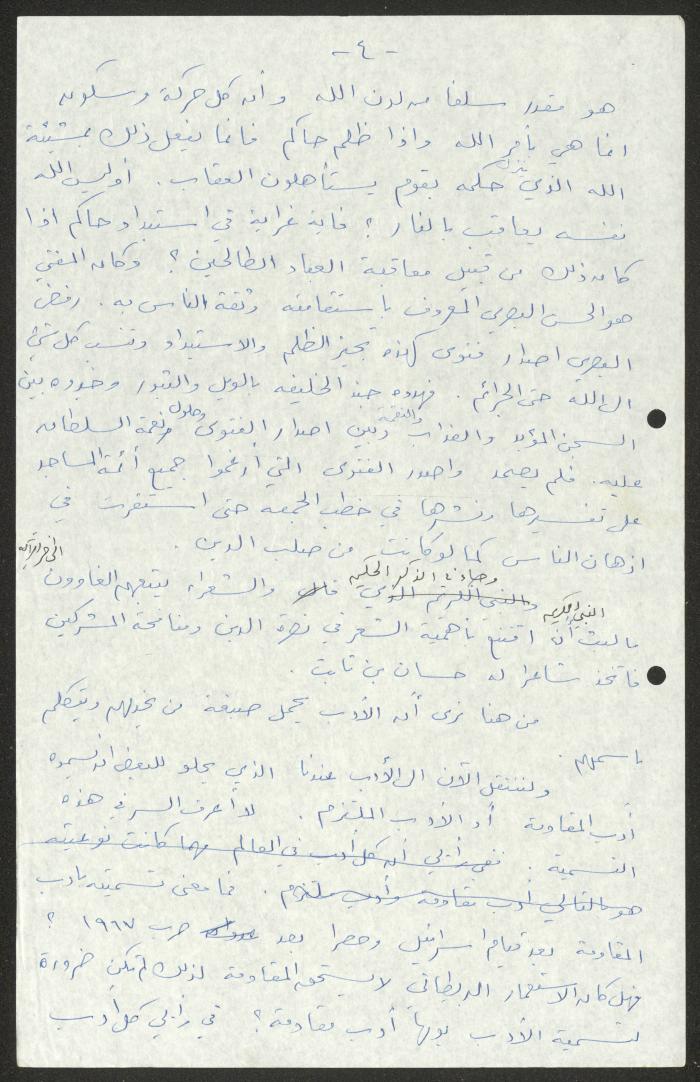 - ٤ -
هو مقدر سلفا من لدن الله وأن كل حركة وسكون
انما هي بأمر الله واذا ظلم حاكم فانما يفعل ذلك بمشيئة
الله الذي ينزل حكمه بقوم يستأهلون العقاب. أوليس الله
نفسه يعاقب بالنار؟ فأية غرابة في استبداد حاكم اذا
كان ذلك من قبيل معاقبة العباد الطالحين؟ وكان المفتي
هو الحسن البصري المعروف باستقامته وثقة الناس به. رفض
البصري اصدار فتوى كهذه تجيز الظلم والاستبداد وتنسب كل شيء
الى الله حتى الجرائم. فهدده جند الخليفه بالويل والثبور وخيروه بين
السجن المؤبد والعذاب والنقمة وبين اصدار الفتوى وحلول نعمة السلطان
عليه. فلم يصمد واصدر الفتوى التي أرغموا جميع أئمة المساجد
على تفسيرها ونشرها في خطب الجمعه حتى استقرت في
اذهان الناس كما لو كانت من صلب الدين.
وجاء في الذكر الحكيم
والنبي الكريم الذي قال والشعراء يتبعهم الغاوون
النبي الكريم
ما لبث أن اقتنع بأهمية الشعر في نصرة الدين ومنافحة المشركين
فاتخذ شاعرا له حسان بن ثابت.
من هنا نرى أن الأدب يحمل صيغة من يخولهم ويتكلم
باسمهم.
ولننتقل الآن الى الأدب عندنا الذي يحلو للبعض ان يسموه
أدب المقاومة أو الأدب الملتزم. لا أعرف السر في هذه
التسمية. ففي رأيي أن كل أدب في العالم مهما كانت نوعيته
هو بالتالي أدب مقاومة وأدب ملتزم. فما معنى تسميته بأدب
المقاومة بعد قيام اسرائيل وحصرا بعد حرب ١٩٦٧؟
فهل كان الاستعمار البريطاني لا يستحق المقاومة لذلك لم تكن ضرورة
لتسمية الأدب يومها أدب مقاومة؟ في رأيي كل أدب